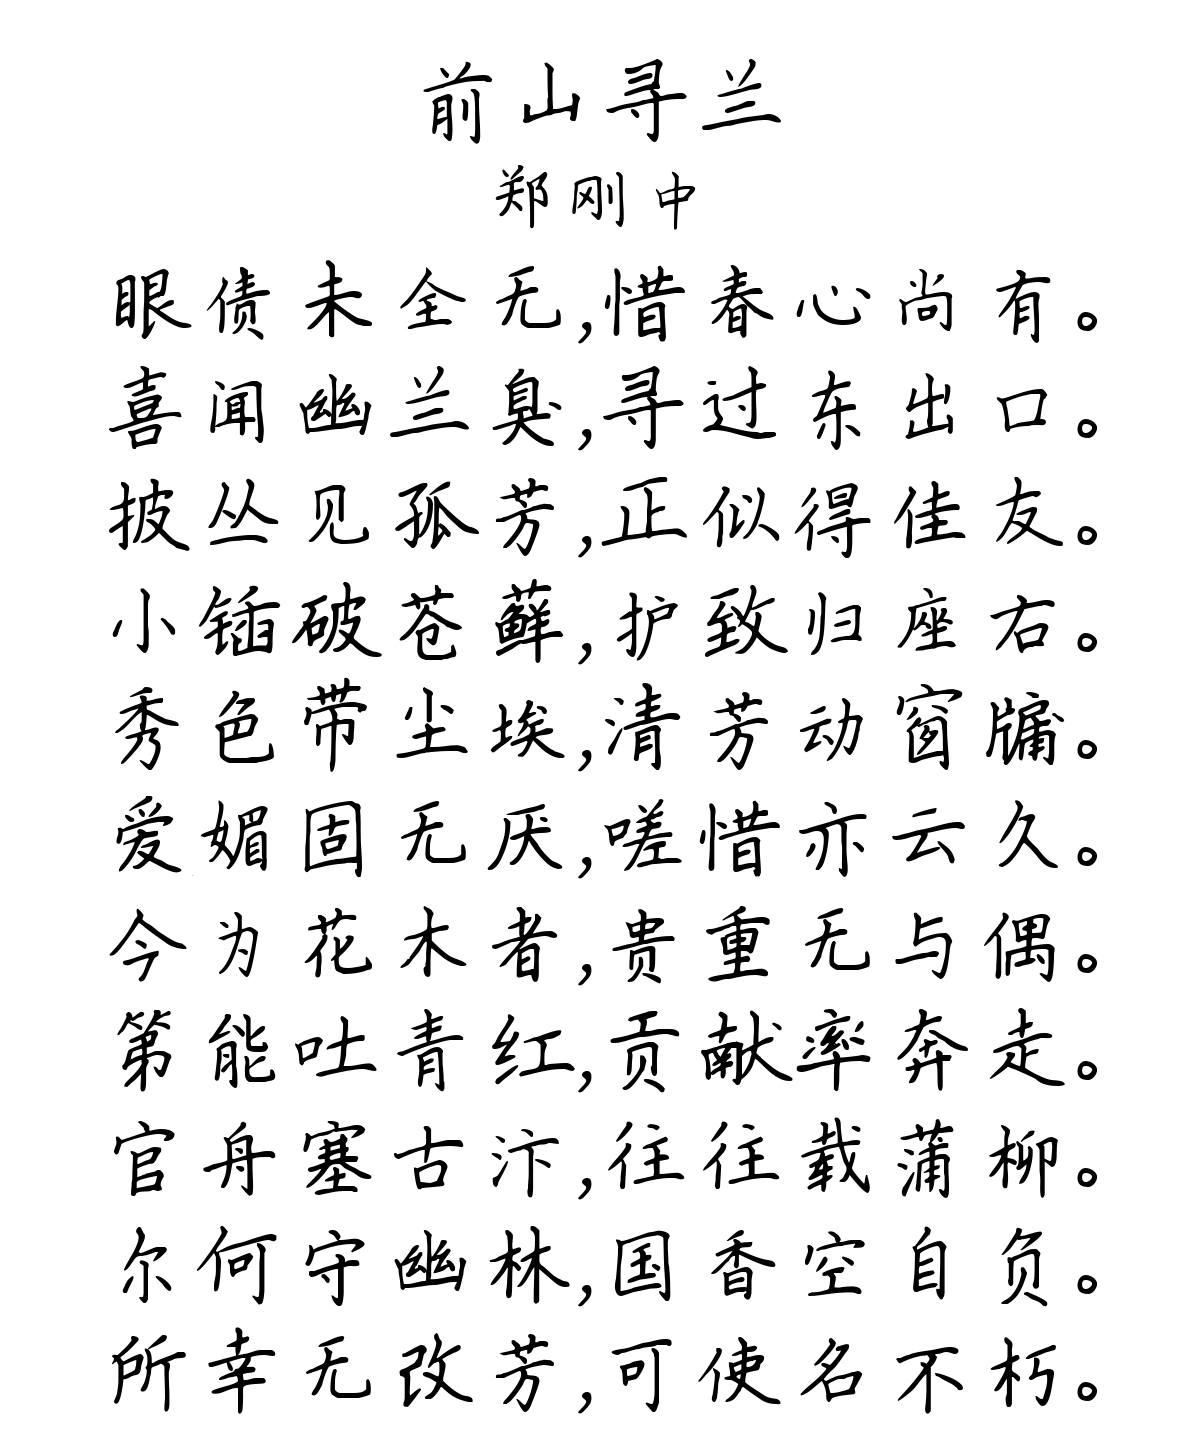 前山寻兰
郑刚中
眼债未全无,惜春心尚有。
喜闻幽兰臭,寻过东出口。
披丛见孤芳,正似得佳友。
小锸破苍藓,护致归座右。
秀色带尘埃,清芳动窗牖。
爱媚固无厌,嗟惜亦云久。
今为花木者,贵重无与偶。
第能吐青红,贡献率奔走。
官舟塞古汴,往往载蒲柳。
尔何守幽林,国香空自负。
所幸无改芳,可使名不朽。